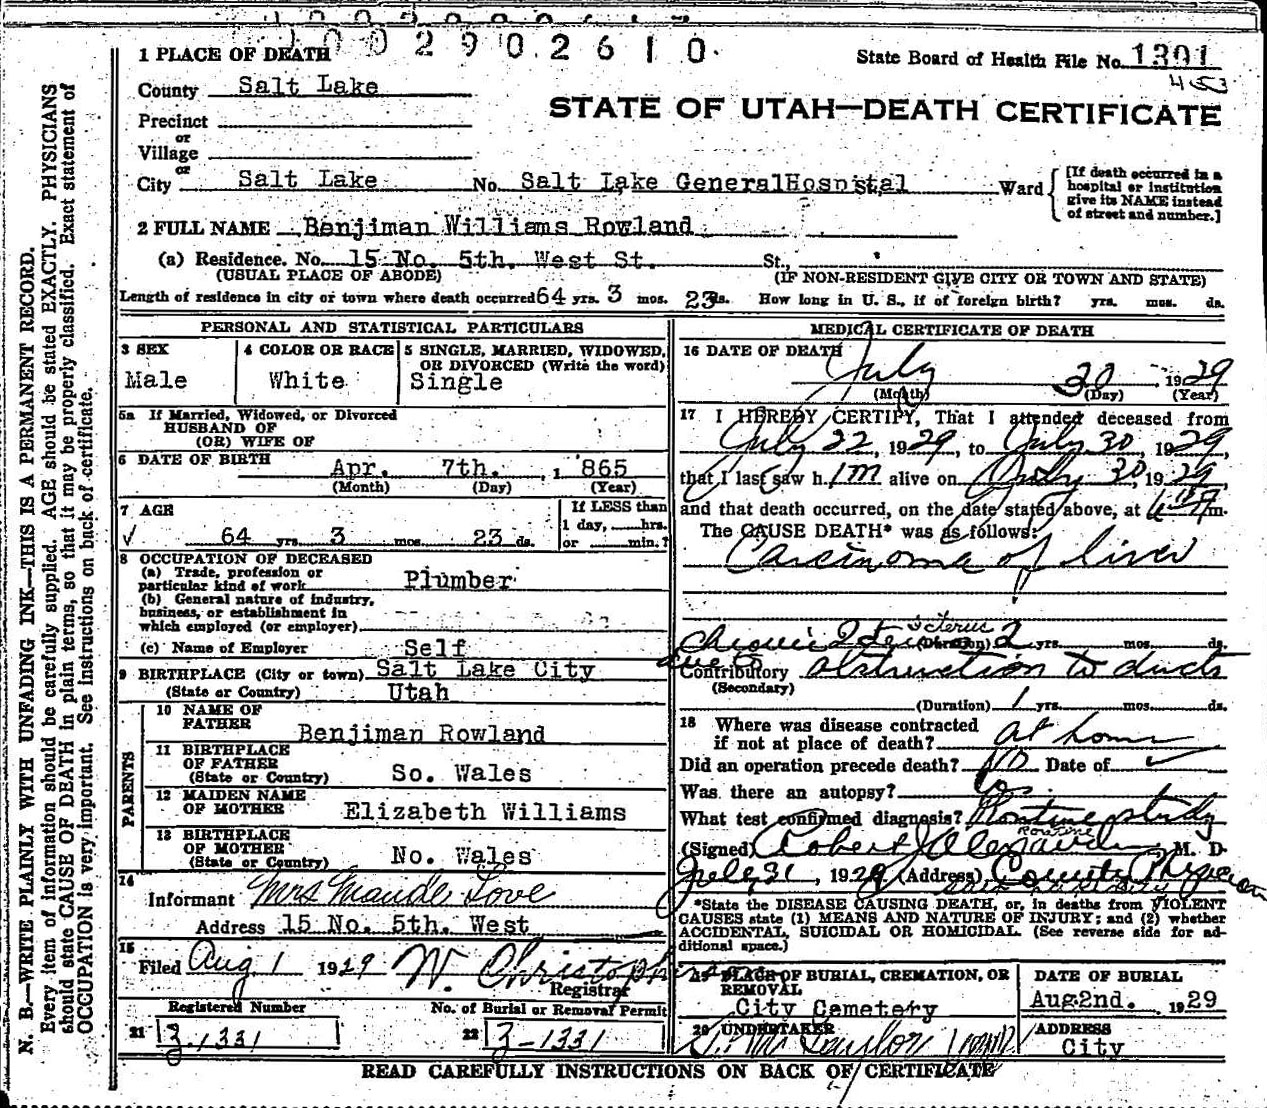 1002902610
1 PLACE OF DEATH
State Board of Health File No. 1301
453
County Salt Lake
STATE OF UTAH—DEATH CERTIFICATE
Precinct
or
Village
or
City Salt Lake No. Salt Lake GeneralHospital Ward
[If death occurred in a hospital or institution give its NAME instead of street and number.]
2 FULL NAME Benjiman Williams Rowland
(a) Residence. No. 15 No. 5th. West St. St.,
(USUAL PLACE OF ABODE) (IF NON-RESIDENT GIVE CITY OR TOWN AND STATE)
Length of residence in city or town where death occurred 64 yrs. 3 mos. 23 ds. How long in U. S., if of foreign birth? yrs. mos. ds.
PERSONAL AND STATISTICAL PARTICULARS
3 SEX Male
4 COLOR OR RACE White
5 SINGLE, MARRIED, WIDOWED, OR DIVORCED (Write the word) Single
5a If Married, Widowed, or Divorced
HUSBAND OF
(OR) WIFE OF
6 DATE OF BIRTH Apr. 7th. 1 865
(Month) (Day) (Year)
7 AGE
If LESS than
1 day, hrs.
or min.?
64 yrs. 3 mos. 23 ds.
8 OCCUPATION OF DECEASED
(a) Trade, profession or
particular kind of work Plumber
(b) General nature of industry,
business, or establishment in
which employed (or employer)
(c) Name of Employer Self
9 BIRTHPLACE (City or town) Salt Lake City
(State or Country) Utah
PARENTS
10 NAME OF
FATHER Benjiman Rowland
11 BIRTHPLACE
OF FATHER
(State or Country) So. Wales
12 MAIDEN NAME
OF MOTHER Elizabeth Williams
13 BIRTHPLACE
OF MOTHER
(State or Country) No. Wales
14
Informant Mrs Maude Love
Address 15 No. 5th. West
15
Filed Aug 1 1929 W. Christopherson
Registrar
Registered Number No. of Burial or Removal Permit
21 3-1331 22 3-1331
MEDICAL CERTIFICATE OF DEATH
16 DATE OF DEATH
July 30, 1929
(Month) (Day) (Year)
17 I HEREBY CERTIFY, That I attended deceased from
July 22, 1929, to July 30, 1929,
that I last saw h im alive on July 30, 1929,
and that death occurred, on the date stated above, at m.
The CAUSE DEATH* was as follows:
Carcinoma of liver
Icterus
Chronic (Duration) 2 yrs. mos. ds.
due to
Contributory obstruction to ducts
(Secondary)
(Duration) 1 yrs. mos. ds.
18 Where was disease contracted
if not at place of death? at home
Did an operation precede death? No Date of
Was there an autopsy?
What test confirmed diagnosis? Routine study
Routine
(Signed) Robert J Alexander, M. D
July 31, 1929 (Address) County Physician
*State the DISEASE CAUSING DEATH, or, in deaths from VIOLENT
CAUSES state (1) MEANS AND NATURE OF INJURY; and (2) whether
ACCIDENTAL, SUICIDAL OR HOMICIDAL. (See reverse side for ad-
ditional space.)
19 PLACE OF BURIAL, CREMATION, OR
REMOVAL
City Cemetery
DATE OF BURIAL
Aug 2nd. 1929
20 UNDERTAKER
Taylor
ADDRESS
City
READ CAREFULLY INSTRUCTIONS ON BACK OF CERTIFICATE
N. B.—WRITE PLAINLY WITH UNFADING INK—THIS IS A PERMANENT RECORD.
Every item of information should be carefully supplied. AGE should be stated EXACTLY. PHYSICIANS
should state CAUSE OF DEATH in plain terms, so that it may be properly classified. Exact statement of
OCCUPATION is very important. See instructions on back of certificate.